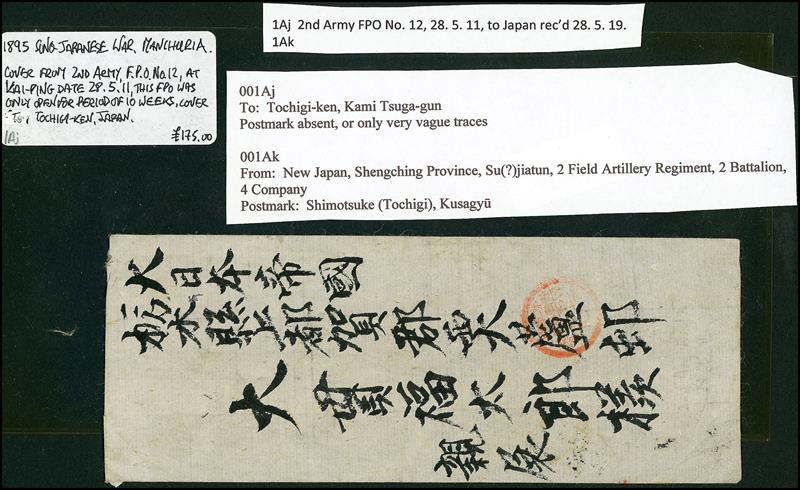 1895 SINO-JAPANESE WAR, MANCHURIA.
COVER FROM 2ND ARMY, F.P.O. No.12, AT
KAI-PING DATE 28.5.11, THIS FPO WAS
ONLY OPEN FOR PERIOD OF 10 WEEKS, COVER
TO, TOCHIGI-KEN, JAPAN.
1Aj £175.00
1Aj 2nd Army FPO No. 12, 28. 5. 11, to Japan rec’d 28. 5. 19.
1Ak
001Aj
To: Tochigi-ken, Kami Tsuga-gun
Postmark absent, or only very vague traces
001Ak
From: New Japan, Shengching Province, Su(?)jiatun, 2 Field Artillery Regiment, 2 Battalion,
4 Company
Postmark: Shimotsuke (Tochigi), Kusagyū
大日本帝國
栃木縣上都賀郡西大蘆邨
大 福太郎様
親展